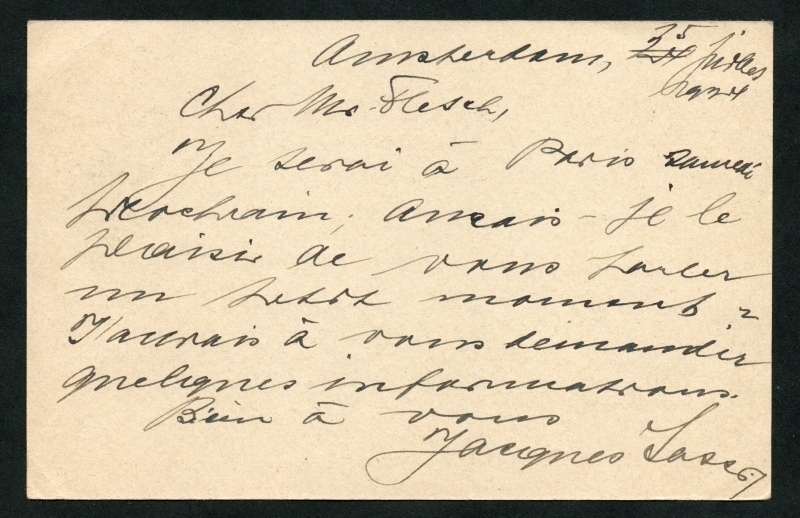 Amsterdam, 25 juillet
Cher Mr. Flesch,
Je serai à Paris samedi
prochain. Aurais-je le
plaisir de vous parler
un petit moment -
J'aurais à vous demander
quelques informations.
Bien à vous
Jacques